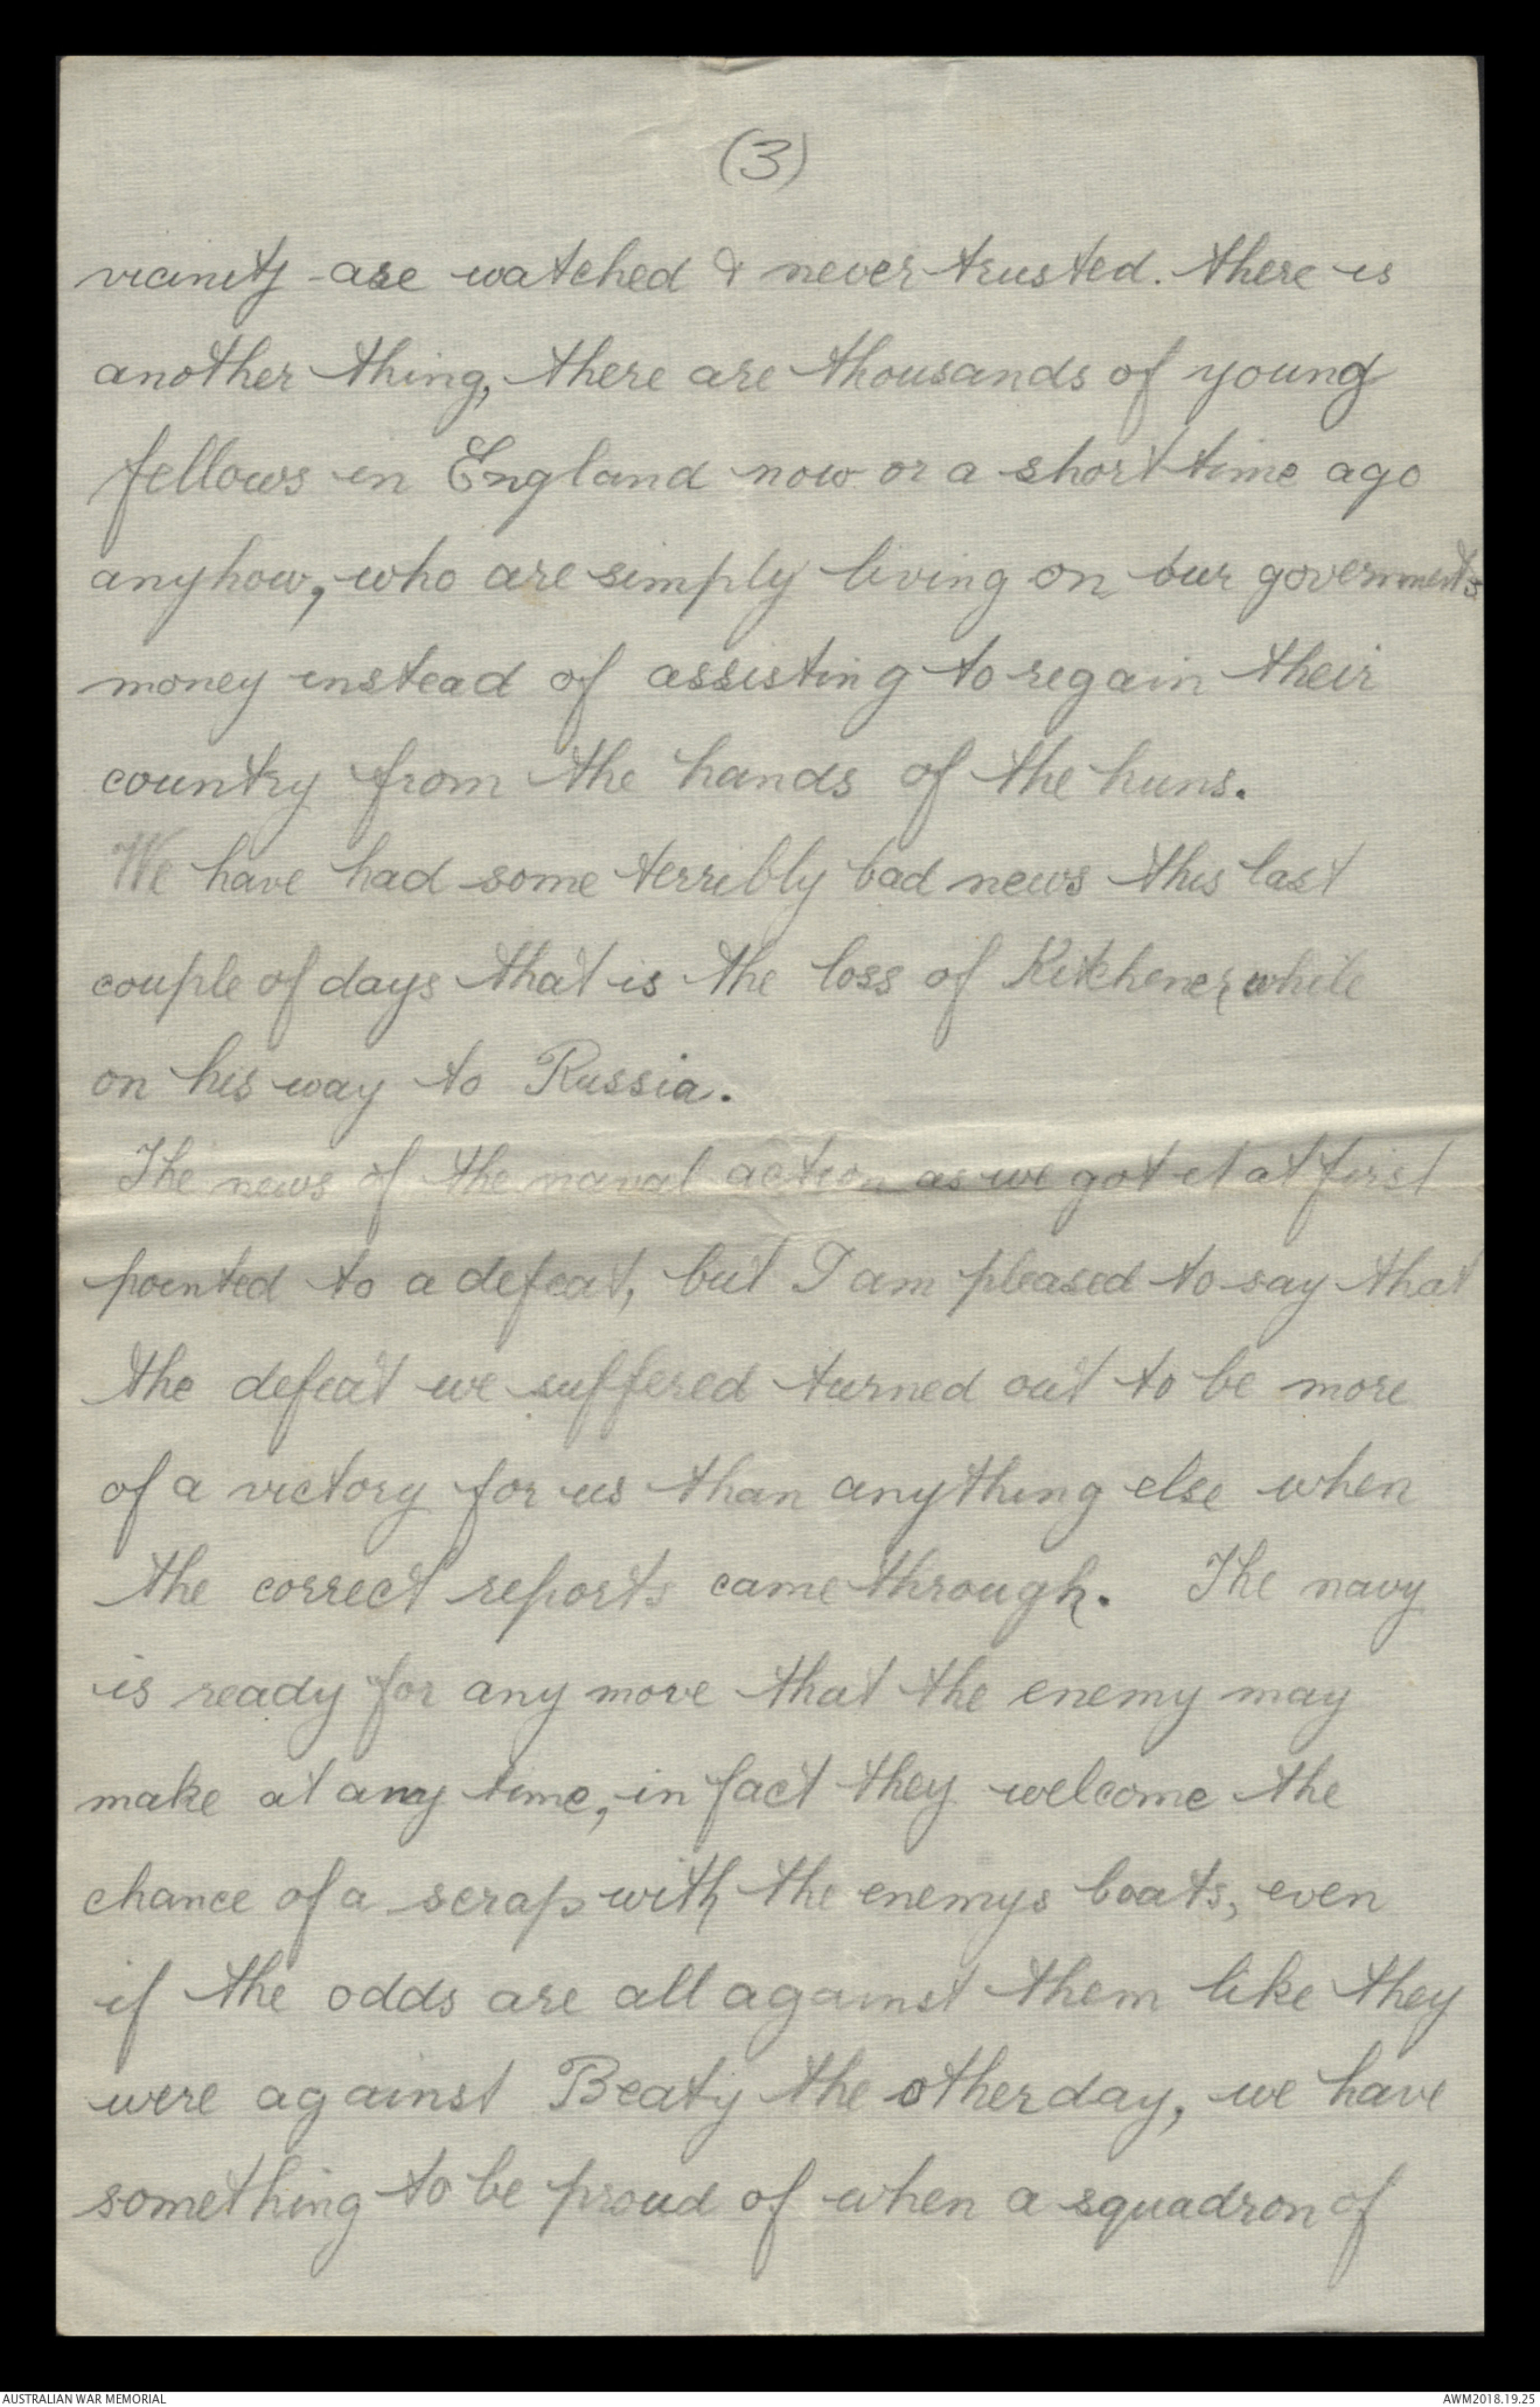 (3)
vicinity are watched & never trusted. there is
another thing, there are thousands of young
fellows in England now or a short time ago
anyhow, who are simply living on our governments
money instead of assisting to regain their
country from the hands of the huns.
We have had some terribly bad news this last
couple of days that is the loss of Kitchener, while
on his way to Russia.
The news of the naval action as we got it at first
pointed to a defeat, but I am pleased to say that
the defeat we suffered turned out to be more
of a victory for us than anything else when
the correct reports came through. The navy
is ready for any move that the enemy may
make at any time, in fact they welcome the
chance of a scrap with the enemys boats, even
if the odds are all against them like they
were against Beaty the other day, we have
something to be proud of when a squadron of
AUSTRALIAN WAR MEMORIAL
AWM2018.19.25